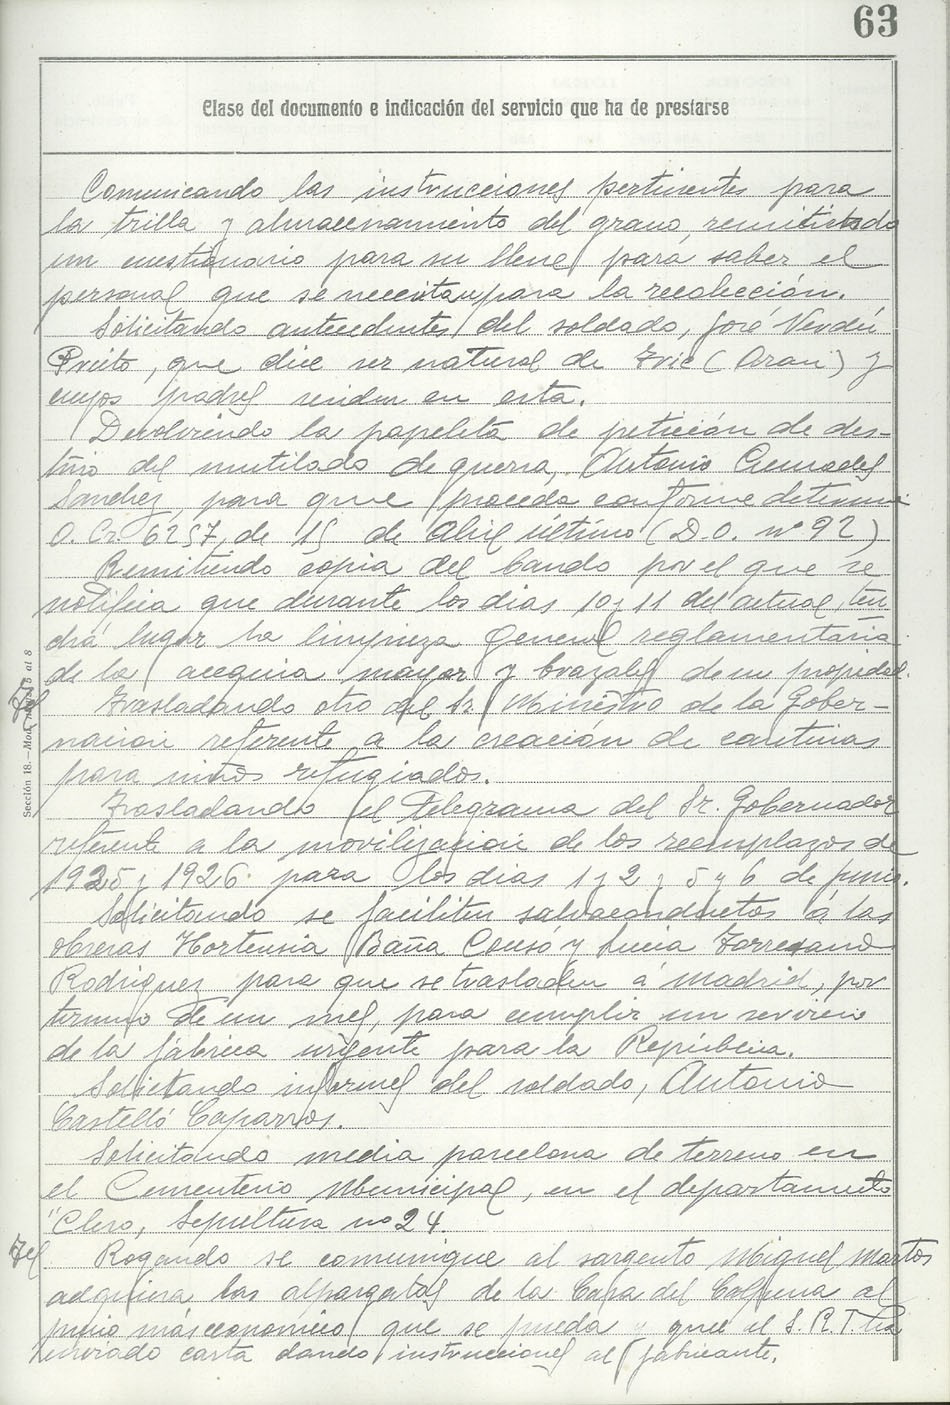 63
Clase del documento e indicación del servicio que ha de prestarse
Comunicando las instrucciones pertinentes para
la trilla y almacenamiento del grano, remitiendo
un cuestionario para su llene, para saber el
personal que se necesitan para la recolección.
Solicitando antecedentes del soldado, José Verdú
Prieto, que dice ser natural de (Oran) y
cuyos padres residen en esta.
Devolviendo la papeleta de petición de des-
tino del mutilado de guerra, Antonio Cremades
Sanchez, para que proceda conforme determina
O. Cr. 6257, de 15 de Abril último (D.O. nº 92)
Remitiendo copia del bando por el que se
notifica que durante los dias 10 y 11 del actual, ten
drá lugar la limpieza general reglamentaria
de la acequia mayor y brazales de su propiedad.
Trasladando otro del Sr. Ministro de la Gober-
nacion referente a la creación de cantinas
para niños refugiados.
Trasladando el Telegrama del Sr. Gobernador
referente a la movilización de los reemplazos de
1925 y 1926 para los dias 1 y 2 y 5 y 6 de junio.
Solicitando se faciliten salvaconductos á las
obreras Hortensia Baña Couso y Lucia
Rodriguez para que se trasladen á Madrid, por
termino de un mes, para cumplir un servicio
de la fábrica urgente para la República.
Solicitando informes del soldado, Antonio
Castelló Caparros.
Solicitando media parcelona de terreno en
el Cementerio Municipal, en el departamento
"Clero, Sepultura nº 24.
Tel Rogando se comunique al sargento Miguel Martos
adquiera las alpargatas de la Casa del al
precio más economico que se pueda y que el S.R.T. ha
enviado carta dando instrucciones al fabricante.
Sección 18.—Mod. núm. 5 al 8